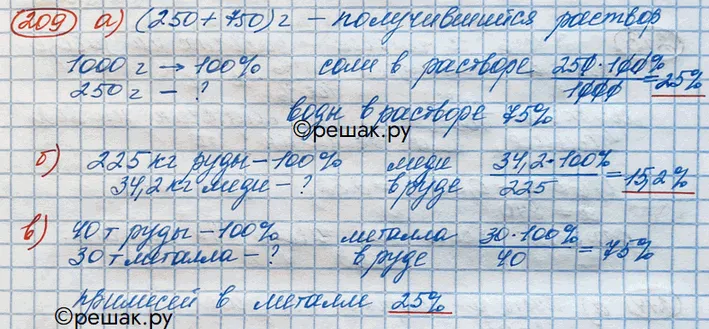 209 а) (250+750) г – получившийся раствор
1000 г → 100% соли в растворе 250·100% / 1000 = 25%
250 г – ?
воды в растворе 75%
©решак.ру
б) 225 кг руды – 100% меди в руде 34,2·100% / 225 = 15,2%
34,2 кг меди – ?
в) 40 т руды – 100% металла в руде 30·100% / 40 = 75%
30 т металла – ?
примесей в металле 25%
©решак.ру